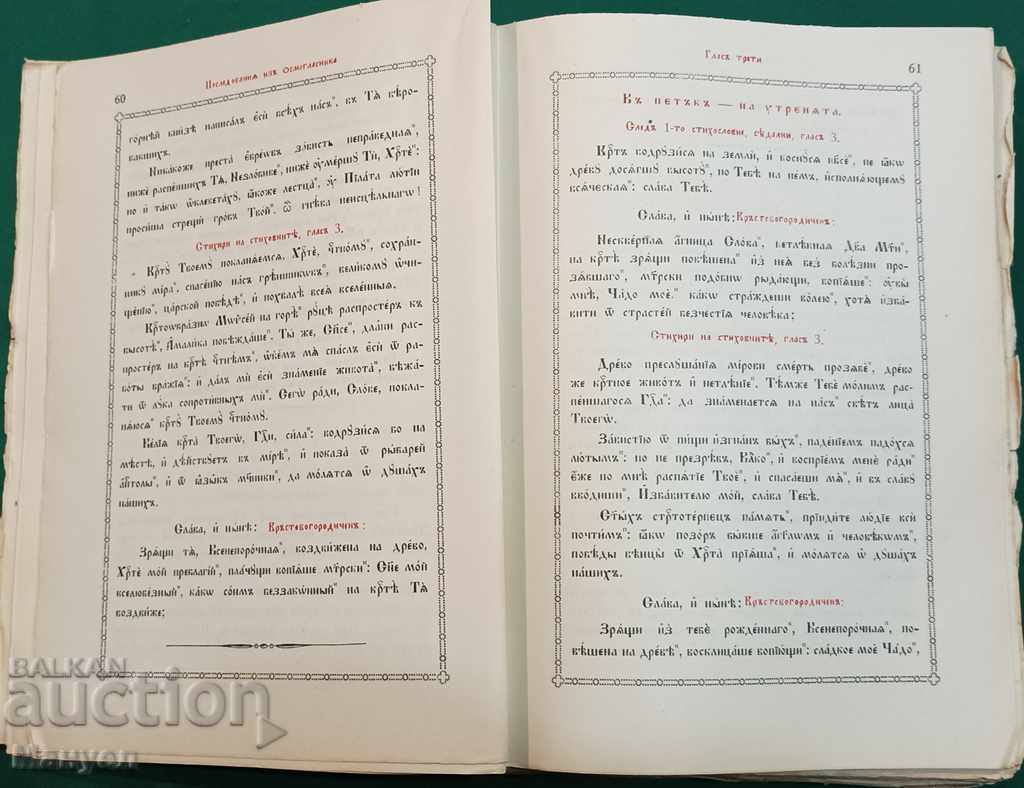 Послѣдованиѧ изъ Осмогласника
60
го́рнѣй кни́зѣ написа́лъ є҆сѝ всѣ́хъ на́съ", въ Тѧ̀ вѣ́ро-
вавшихъ.
Ника́коже преста̀ є҆вре́ѡвъ за́висть непра́веднаѧ",
нижѐ распе́ншихъ Тѧ̀, Незло́биве", нижѐ ᲂу҆ме́ршꙋ Тѝ, Хрⷭ҇тѐ":
но и҆ та́кѡ ѡ҆клевета́хꙋ", ꙗ҆́коже лестца̀", ᲂу҆̀ Пїла́та лю́тїи
проси́ша стрещѝ гро́бъ Тво́й". Ѽ гнѣ́ва неисцѣ́льнагѡ!
Стихири на стиховнитѣ, гласъ 3.
Крⷭ҇тꙋ̀ Твоемꙋ̀ покланѧ́емсѧ, Хрⷭ҇тѐ", чⷭ҇тно́мꙋ", сохра́н-
никꙋ мі́ра", спасе́нїю на́съ грѣ́шникѡвъ", вели́комꙋ ѡ҆чи-
ще́нїю", ца́рской побѣ́дѣ", и҆ похвалѣ̀ всеѧ̀ вселе́нныѧ.
Крⷭ҇тоѡбра́знѡ Мѡѷсе́й на горѣ̀" рꙋ́цѣ распросте́ръ къ
высотѣ̀", А҆мали́ка побѣжда́ше". Ты́ же, Сп҃се", дла́ни рас-
просте́ръ на крⷭ҇тѣ̀ чⷭ҇тнѣ́мъ", ѡ҆б̾е́мъ мѧ̀ спа́слъ є҆сѝ ѿ ра-
бо́ты вра́жїѧ": и҆ да́лъ мѝ є҆сѝ зна́менїе живота̀", бѣжа́-
ти ѿ лꙋ́ка сопроти́вныхъ мѝ". Сегѡ̀ ра́ди, Сло́ве, покла-
нѧ́юсѧ" крⷭ҇тꙋ̀ Твоемꙋ̀ чⷭ҇тно́мꙋ.
Ве́лїѧ крⷭ҇та̀ Твоегѡ̀, Гдⷭ҇и, си́ла": водрꙋзи́сѧ бо на
мѣ́стѣ, и҆ дѣ́йствꙋетъ въ мі́рѣ", и҆ показа̀ ѿ рыба́рей
а҆пⷭ҇толы", и҆ ѿ ꙗ҆зы́къ мч҃ники", да мо́лѧтсѧ ѿ дꙋша́хъ
на́шихъ.
Слава, и нынѣ: Кръстебогородиченъ:
Зрѧ́щи тѧ̀, Всенепоро́чнаѧ", воздви́жена на дре́во,
Хрⷭ҇тѐ мо́й преблагі́й", пла́чꙋщи вопїѧ́ше мт҃рски": Сн҃е мо́й
вселюбе́зный", ка́кѡ со́нмъ беззако́нный" на крⷭ҇тѣ̀ Тѧ̀
воздви́же;
Гласъ трети
61
Въ петъкъ — на утренята.
Следъ 1-то стихословие, сѣдални, гласъ 3.
Крⷭ҇тъ водрꙋзи́сѧ на землѝ, и҆ коснꙋ́сѧ нб҃сѐ", не ꙗ҆́кѡ
дре́вꙋ дося́гшꙋ высотꙋ̀", но Тебѣ̀ на не́мъ, и҆сполнѧ́ющемꙋ
всѧ́ческаѧ": сла́ва Тебѣ̀.
Слава, и нынѣ: Кръстебогородиченъ:
Нескве́рнаѧ а҆́гница Сло́ва", нетлѣ́ннаѧ Дв҃а Мт҃и",
на крⷭ҇тѣ̀ зрѧ́щи повѣ́шена" и҆з̾ неѧ̀ без̾ болѣ́зни про-
зѧ́бшаго", мт҃рски подо́бнѡ рыда́ющи, вопїѧ́ше": ᲂу҆вы̀
мнѣ̀, Ча́до моѐ." ка́кѡ стра́ждеши во́лею", хотѧ̀ и҆зба́-
вити ѿ страсте́й безче́стїѧ человѣ́ка;
Стихири на стиховнитѣ, гласъ 3.
Дре́во преслꙋша́нїѧ мі́рови сме́рть прозѧбѐ", дре́во
же крⷭ҇тное живо́тъ и҆ нетлѣ́нїе". Тѣ́мже Тебѐ мо́лимъ рас-
пе́ншагосѧ Гдⷭ҇а": да зна́менаетсѧ на на́съ" свѣ́тъ лица̀
Твоегѡ̀.
За́вистїю ѿ пи́щи и҆згна́нъ бы́хъ", паде́нїемъ падо́хсѧ
лю́тымъ": но не презрѣ́въ, Влⷣко", и҆ воспрїе́мъ менѐ ра́ди"
є҆́же по мнѣ̀ распѧ́тїе Твоѐ", и҆ спаса́еши мѧ̀", и҆ въ сла́вꙋ
вво́диши", И҆зба́вителю мо́й, сла́ва Тебѣ̀.
Ст҃ы́хъ стрⷭ҇тоте́рпецъ па́мѧть", прїиди́те лю́дїе всѝ
почти́мъ": ꙗ҆́кѡ позо́ръ бы́вше а҆́гг҃лѡмъ и҆ человѣ́кѡмъ",
побѣ́ды вѣнцы̀ ѿ Хрⷭ҇та̀ прїѧ́ша", и҆ мо́лѧтсѧ ѿ дꙋша́хъ
на́шихъ.
Слава, и нынѣ: Кръстебогородиченъ:
Зрѧ́щи и҆з̾ тебѐ рожде́ннаго", Всенепоро́чнаѧ", по-
вѣ́шена на дре́вѣ", восклица́ше вопїю́щи": сла́дкое моѐ Ча́до",
BALKAN
auction
Мануол